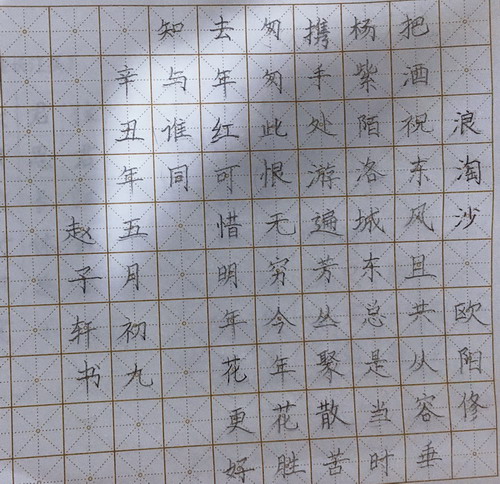 浪淘沙 欧阳修
把酒祝东风且共从容垂
杨紫陌洛城东总是当时
携手处游遍芳丛聚散苦
匆匆此恨无穷今年花胜
去年红可惜明年花更好
知与谁同
辛丑年五月初九
赵子轩书